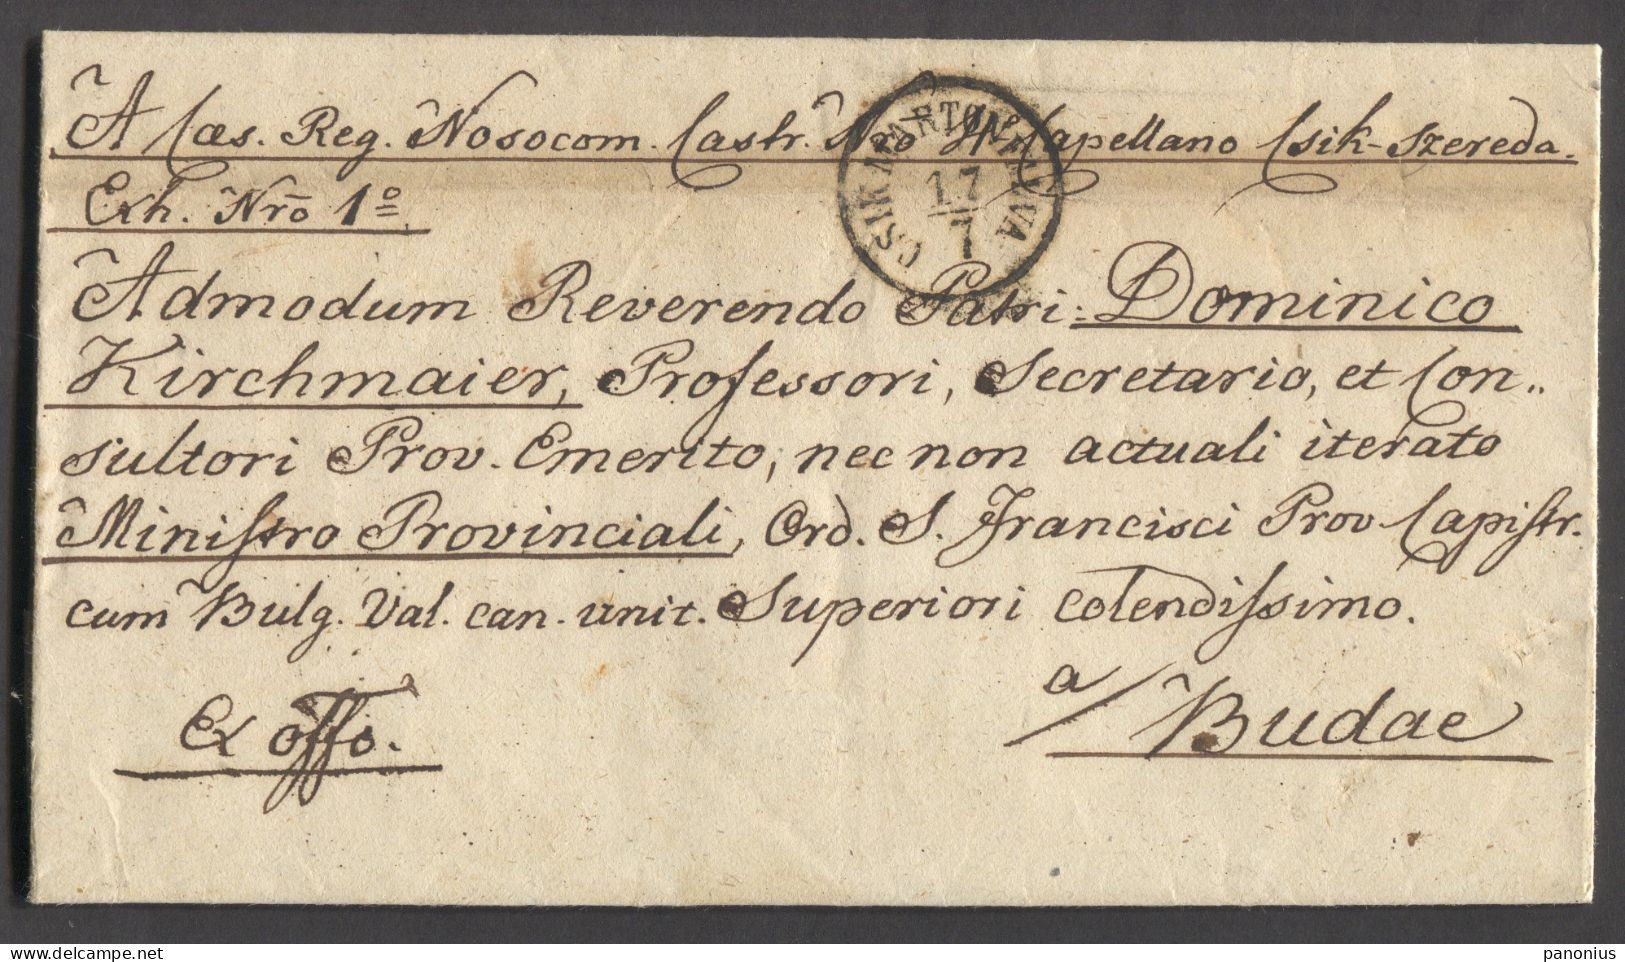 A Cæs. Reg. Nosocom. Castr. Nrō Capellano Csik-Szereda.
Exh. Nrō 1º
CSIK MARTONFALVA
17
7
Admodum Reverendo Patri Dominico
Kirchmaier, Professori, Secretario, et Con„
sultori Prov. Emerito, nec non actuali iterato
Ministro Provinciali, Ord. S. Francisci Prov Capistr.
cum Bulg. Val. can. unit. Superiori colendissimo.
Ex offo.
a/ Budae
delcampe.net
panonius